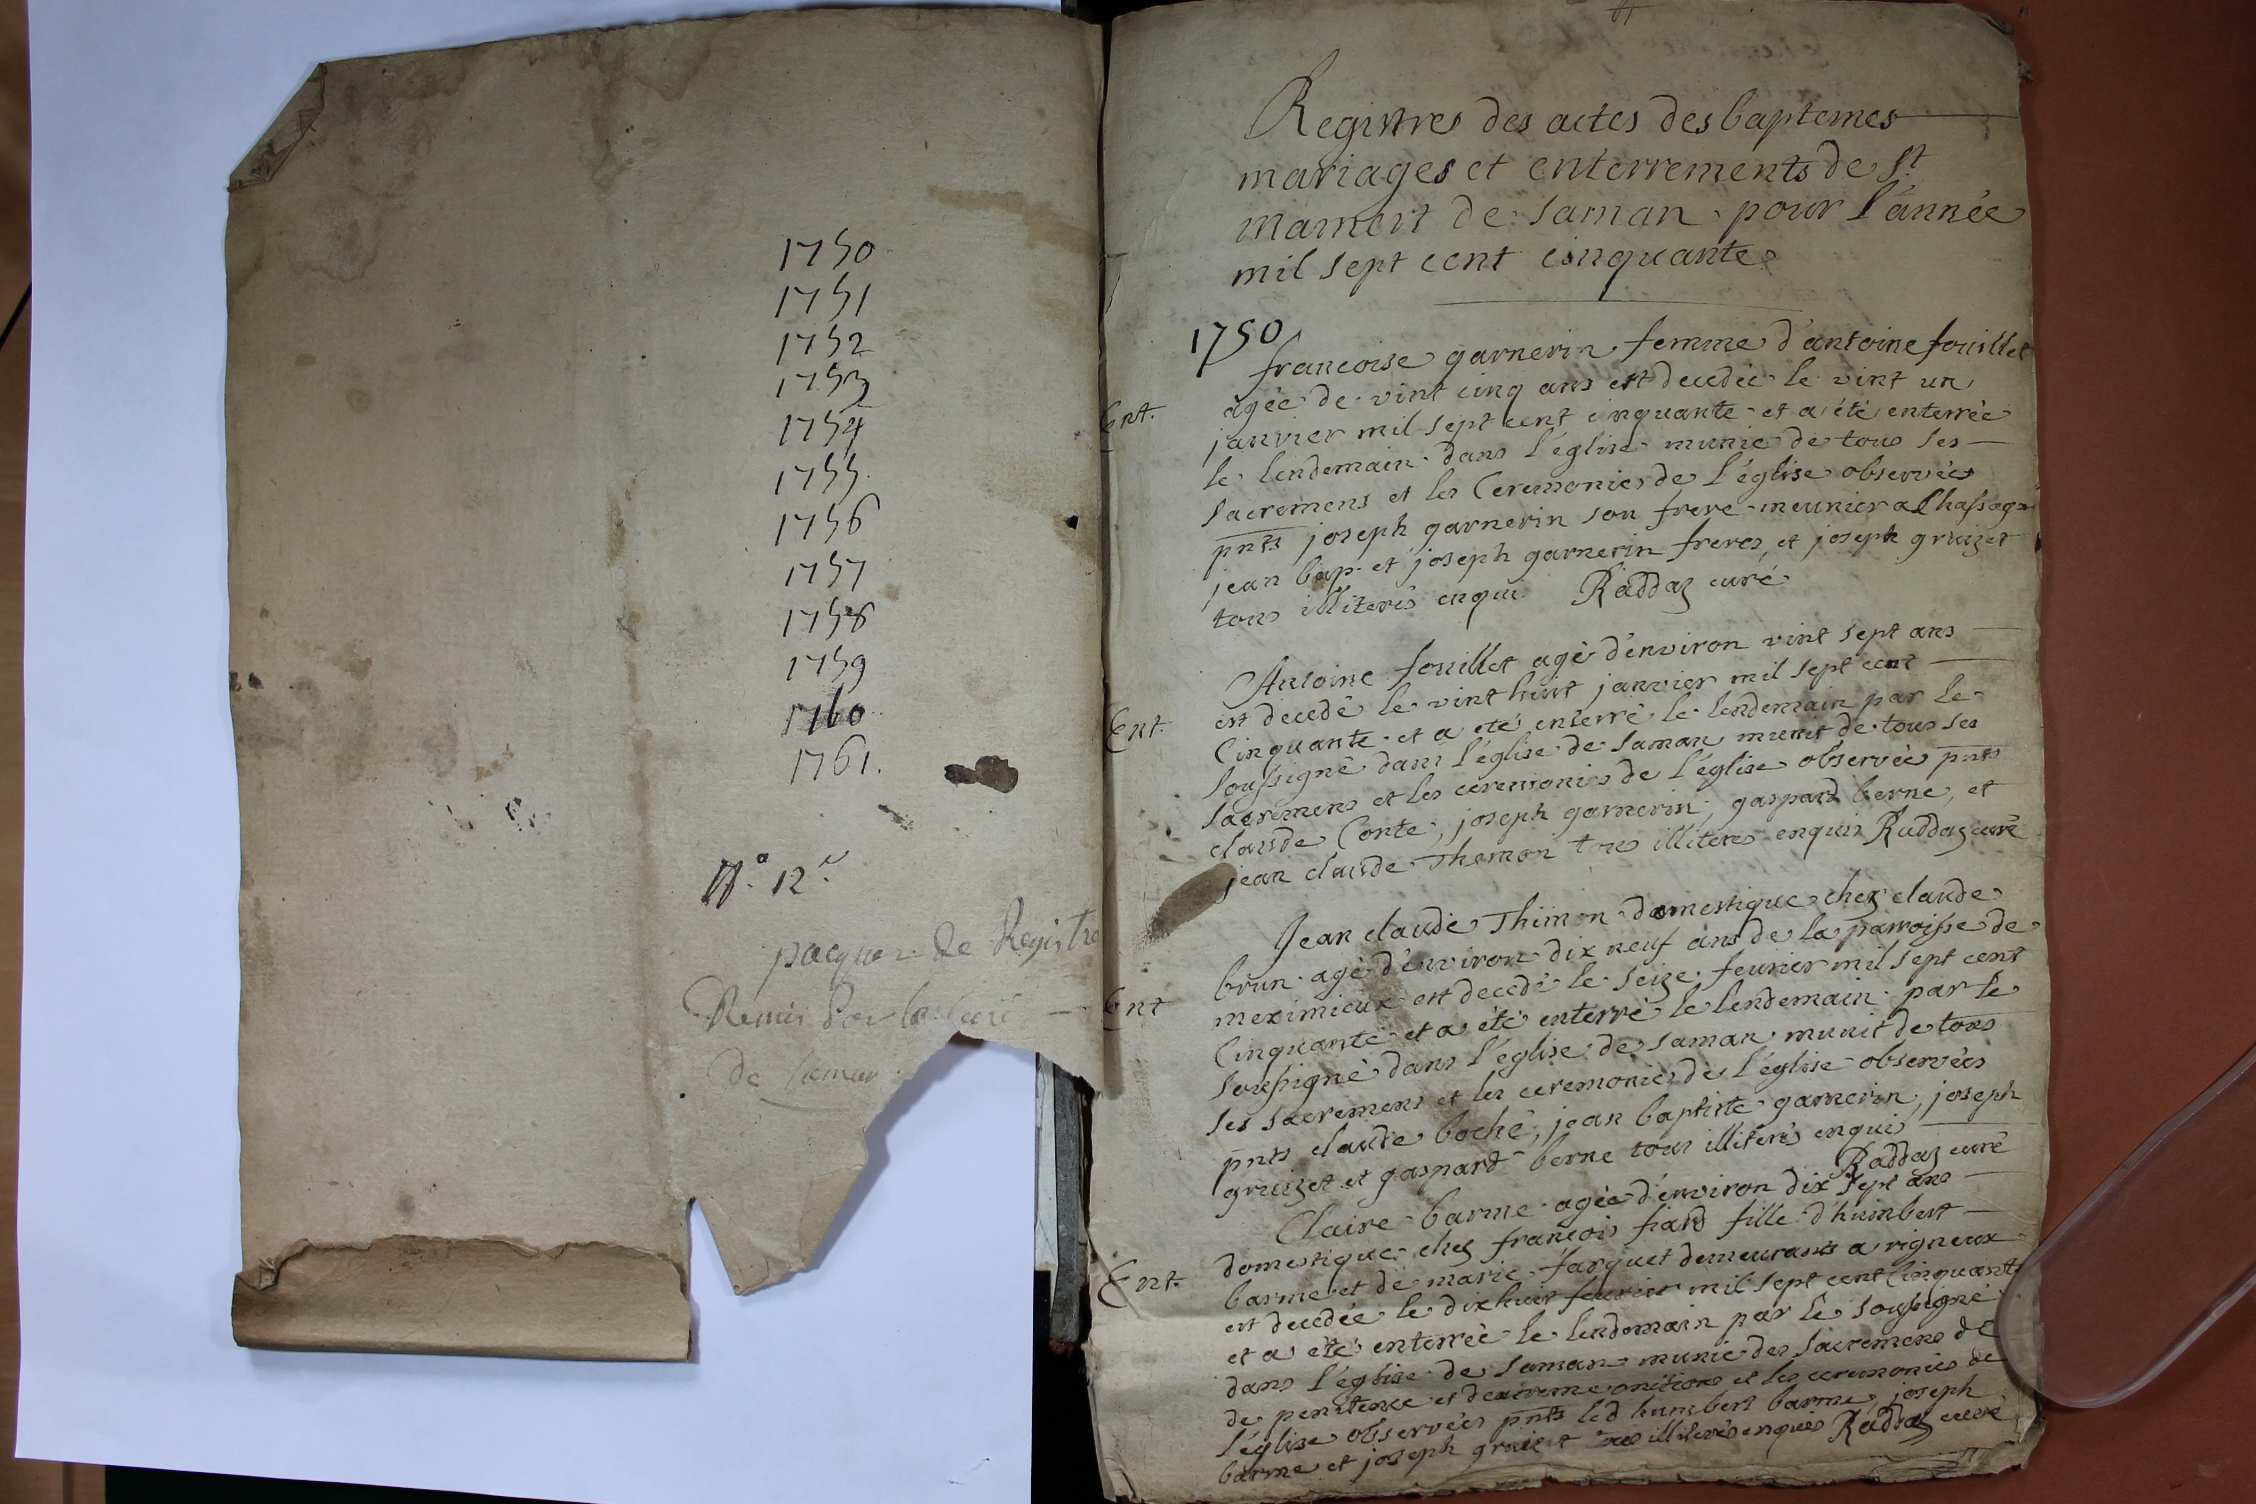 1750
1751
1752
1753
1754
1755.
1756
1757
1758
1759
1760
1761.
N.° 12.
pacquet de Registre
Remis par le curé
de saman
Registres des actes des baptemes
mariages et enterrements de St
mamert de saman pour l'année
mil sept cent cinquante
1750
francoise garnerin femme d'antoine fouillet
Ent.
agée de vint cinq ans est decedée le vint un
janvier mil sept cent cinquante et a été enterrée
le lendemain dans l'église munie de tous ses
sacremens et les Ceremonies de l'église observées
pnts joseph garnerin son frere meunier a Chassagn
jean bap. et joseph garnerin freres et joseph gruizet
tous illiterés enquis Raddaz curé
Antoine fouillet agé d'environ vint sept ans
Ent.
est decedé le vint huit janvier mil sept cent
Cinquante et a été enterré le lendemain par le
soussigné dans l'église de saman munit de tous ses
sacremens et les ceremonies de l'église observées pnts
claude Conte, joseph garnerin, gaspard berne, et
jean claude Themon tous illiteres enquis Raddaz curé
Jean claude Thimon domestique chez claude
brun agé d'environ dix neuf ans de la parroisse de
Ent
meximieux est decedé le seize fevrier mil sept cent
Cinquante et a été enterré le lendemain par le
soussigné dans l'eglise de saman munit de tous
ses sacremens et les ceremonies de l'église observées
pnts claude boché, jean baptiste garnerin, joseph
gruizet et gaspard berne tous illiterés enquis
Raddaz curé
Claire barme agée d'environ dix sept ans
Ent.
domestique chez françois fiard fille d'humbert
barme et de marie farquet demeurants a rigneux
est decedée le dixhuit fevrier mil sept cent Cinquante
et a été enterrée le lendomain par le soussigné
dans l'église de saman munie des sacremens de
de penitence et d'extreme onction et les ceremonies de
l'église observées pnts led humbert barme, joseph
barme et joseph gruizet tous illiterés enquis Raddaz curé